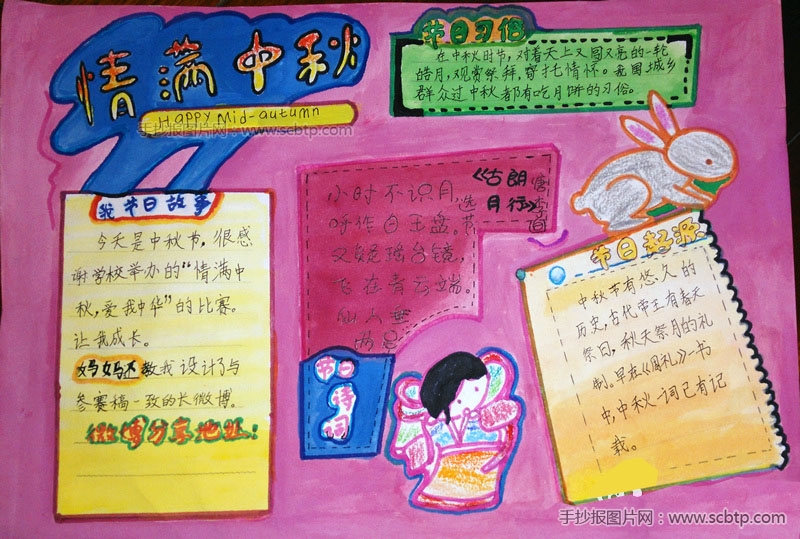 情满中秋
Happy Mid-autumn
手抄报图片网：www.scbtp.com
节日习俗
在中秋时节，对着天上又圆又亮的一轮
皓月，观赏祭拜，寄托情怀。我国城乡
群众过中秋都有吃月饼的习俗。
我节日故事
今天是中秋节，很感
谢学校举办的“情满中
秋，爱我中华”的比赛。
让我成长。
妈妈还教我设计了与
参赛稿一致的长微博。
微博分享地址：
《古朗
月行》
唐李白
小时不识月，
呼作白玉盘。
又疑瑶台镜，
飞在青云端。
仙人垂
两足
选
节
节日
诗词
节日起源
中秋节有悠久的
历史，古代帝王有春天
祭日，秋天祭月的礼
制。早在《周礼》一书
中，中秋一词已有记
载。
手抄报图片网：www.scbtp.com